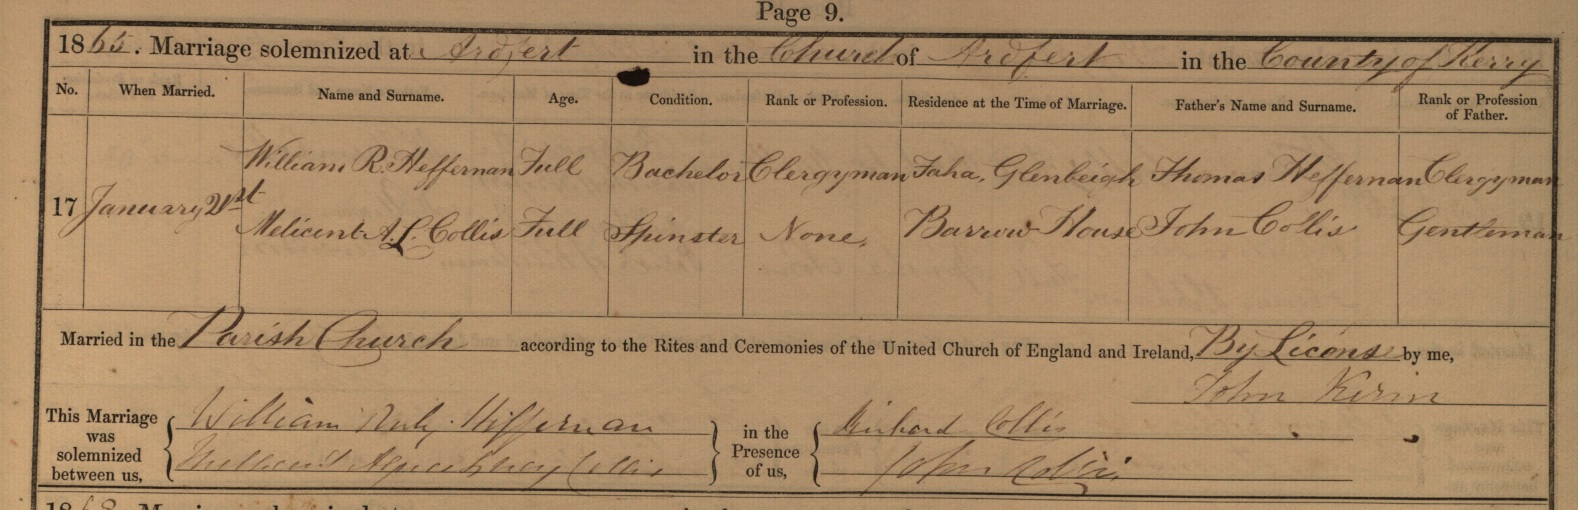 Page 9.
1865. Marriage solemnized at Ardfert in the Church of Ardfert in the County of Kerry
No. When Married. Name and Surname. Age. Condition. Rank or Profession. Residence at the Time of Marriage. Father's Name and Surname. Rank or Profession of Father.
William R. Heffernan Full Bachelor Clergyman Faha, Glenbeigh Thomas Heffernan Clergyman
17 January 21st
Melicent A. L. Collis Full Spinster None, Barrow House John Collis Gentleman
Married in the Parish Church according to the Rites and Ceremonies of the United Church of England and Ireland, By License by me,
John Kerin
This Marriage was solemnized between us, William Heffernan in the Presence of us, Richard Collis
Collis John Collis